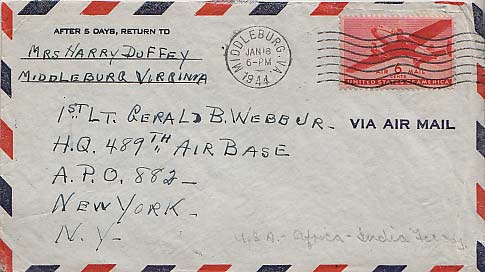 AFTER 5 DAYS, RETURN TO
MRS HARRY DUFFEY
MIDDLEBURG VIRGINIA
MIDDLEBURG, VA.
JAN 18
6-PM
1944
AIR 6 MAIL
CENTS
UNITED STATES OF AMERICA
1ST LT. GERALD B. WEBBUR
H.Q. 489TH AIR BASE
VIA AIR MAIL
A.P.O. 882
NEW YORK
N.Y.
U.S.A. - Africa - India Ferry